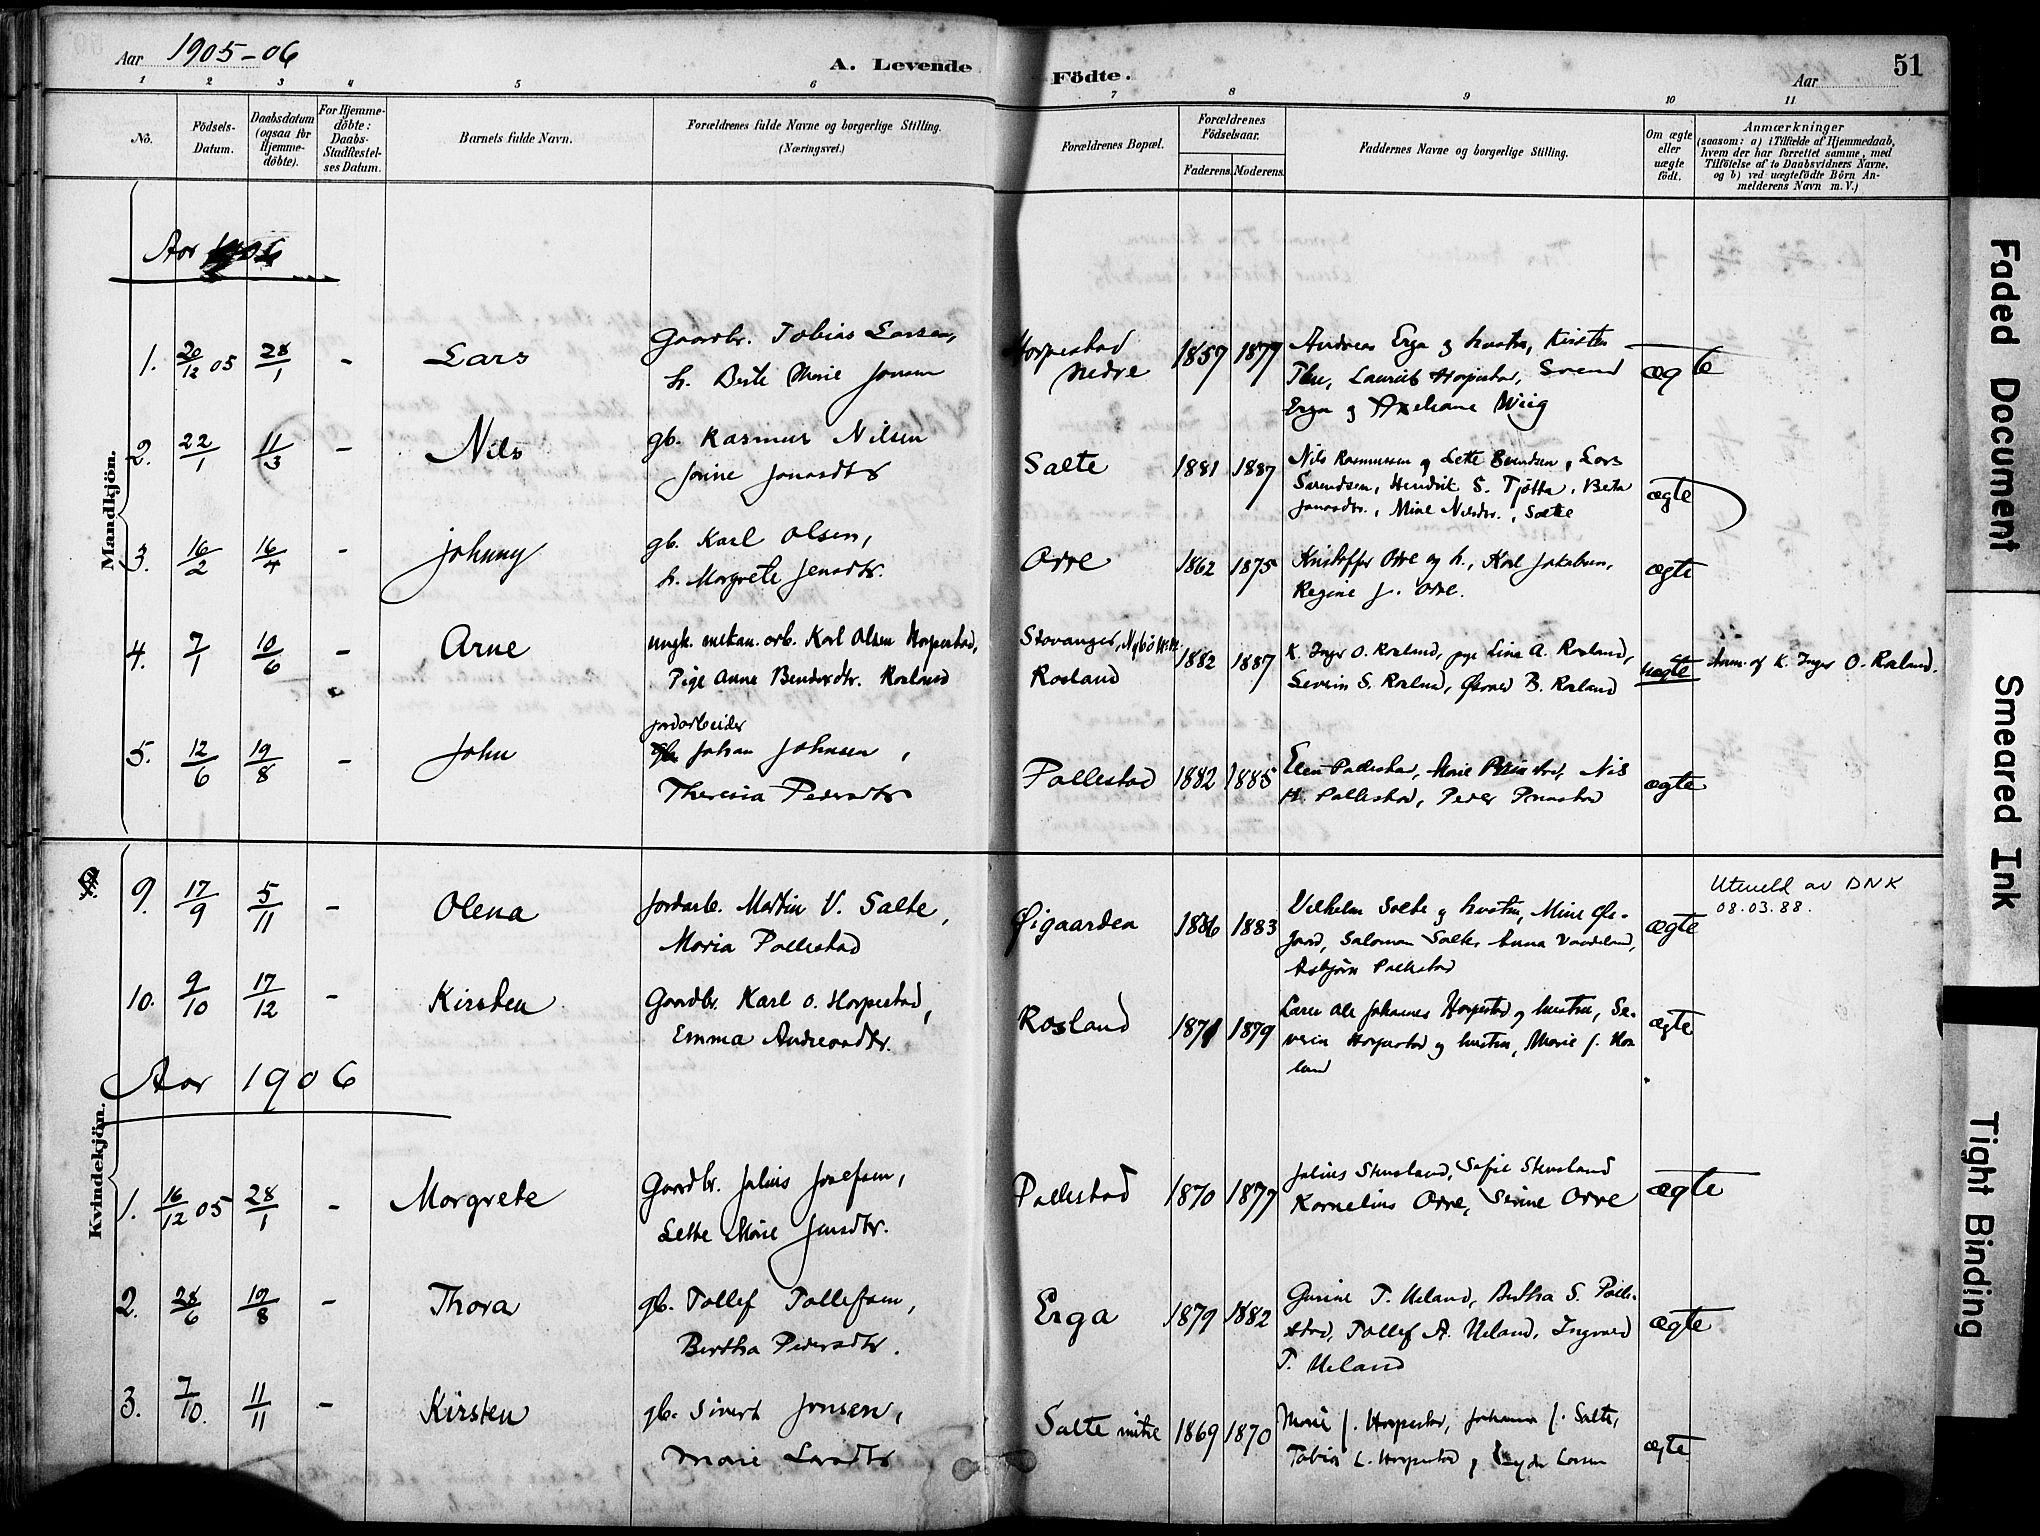 Aar 1905-06
A. Levende Födte.
Aar
51
1 2 3 4 5 6 7 8 9 10 11
No.
Födsels-
Datum.
Daabsdatum
(ogsaa for
Hjemme-
döbte).
For Hjemme-
döbte:
Daabs-
Stadfæstel-
ses Datum.
Barnets fulde Navn.
Forældrenes fulde Navne og borgerlige Stilling.
(Næringsvei.)
Forældrenes Bopæl.
Forældrenes
Födselsaar.
Faderens. Moderens.
Faddernes Navne og borgerlige Stilling.
Om ægte
eller
uægte
födt.
Anmærkninger
(saasom: a) i Tilfælde af Hjemmedaab,
hvem der har forrettet samme, med
Tilföielse af to Daabsvidners Navne,
og b) ved uægtefödte Börn An-
melderens Navn m. V.)
Mandkjön.
Aar 1906
1. 20/12 05 28/1 - Lars
Gaardbr. Tobias Larsen,
h. Berte Marie Jonsen
Horpestad
nedre
1857 1877
Andreas Erga og hustru, Kirsten
Laurits Horpestad, Svend
Erga og Axeliane Wiig
ægte
2. 22/1 11/3 - Nils
gb. Rasmus Nilsen
Jorine Jonasdtr
Salte
1881 1887
Nils Rasmussen og Lette Svendsen, Lars
Sørendsen, Hendrik S. Tjötta, Berta
Jonasdtr., Mine Nilsdtr., Salte
ægte
3. 16/2 16/4 - Johnny
gb. Karl Olsen,
h. Margrete Jensdtr.
Orre
1862 1875
Kristoffer Orre og h., Karl Jakobsen,
Regine J. Orre.
ægte
4. 7/1 10/6 - Arne
ungk. mekan. arb. Karl Olsen Horpestad,
Pige Anna Bendixdtr. Rosland
Stavanger,
Rosland
1882 1887
K. Inger O. Rosland, pige Lina A. Rosland,
Severin S. Rosland, B. Rosland
uægte
Anm. af K. Inger O. Rosland.
5. 12/6 19/8 - John
jordarbeider
gb. Johan Johnsen,
Theresia Pedersdtr
Pollestad
1882 1885
Elen Pollestad, Marie Nils
H. Pollestad, Peder
ægte
Kvindekjön.
9. 17/9 5/11 - Olena
Jordarb. Martin V. Salte,
Maria Pollestad
Øigaarden
1886 1883
Vilhelm Salte og hustru, Mine Øi-
gaard, Salomon Salte, Anna Vadeland,
Asbjörn Pollestad
ægte
Utmeld av DNK
08.03.88.
10. 9/10 17/12 - Kirsten
Gaardbr. Karl O. Horpestad,
Emma Andreasdtr.
Rosland
1871 1879
Lærer Ole Johannes Horpestad og hustru, Se-
verin Horpestad og hustru, Marie J. Hor-
land
ægte
Aar 1906
1. 16/12 05 28/1 - Margrete
Gaardbr. Julius Josefsen,
Lette Marie Jensdtr.
Pollestad
1870 1877
Julius Stensland, Sofie Stensland
Kornelius Orre, Serine Orre
ægte
2. 28/6 19/8 - Thora
gb. Tollef Tollefsen,
Bertha Pedersdtr.
Erga
1879 1882
Gurine T. Ueland, Bertha S. Polle-
stad, Tollef A. Ueland, Ingvard
T. Ueland
ægte
3. 7/10. 11/11 - Kirsten
gb. Sivert Jonsen,
Marie Larsdtr
Salte mitre
1869 1870
Marie J. Horpestad, Johanna J. Salte,
Tobias L. Horpestad, Larsen
ægte
Faded Document
Smeared Ink
Tight Binding